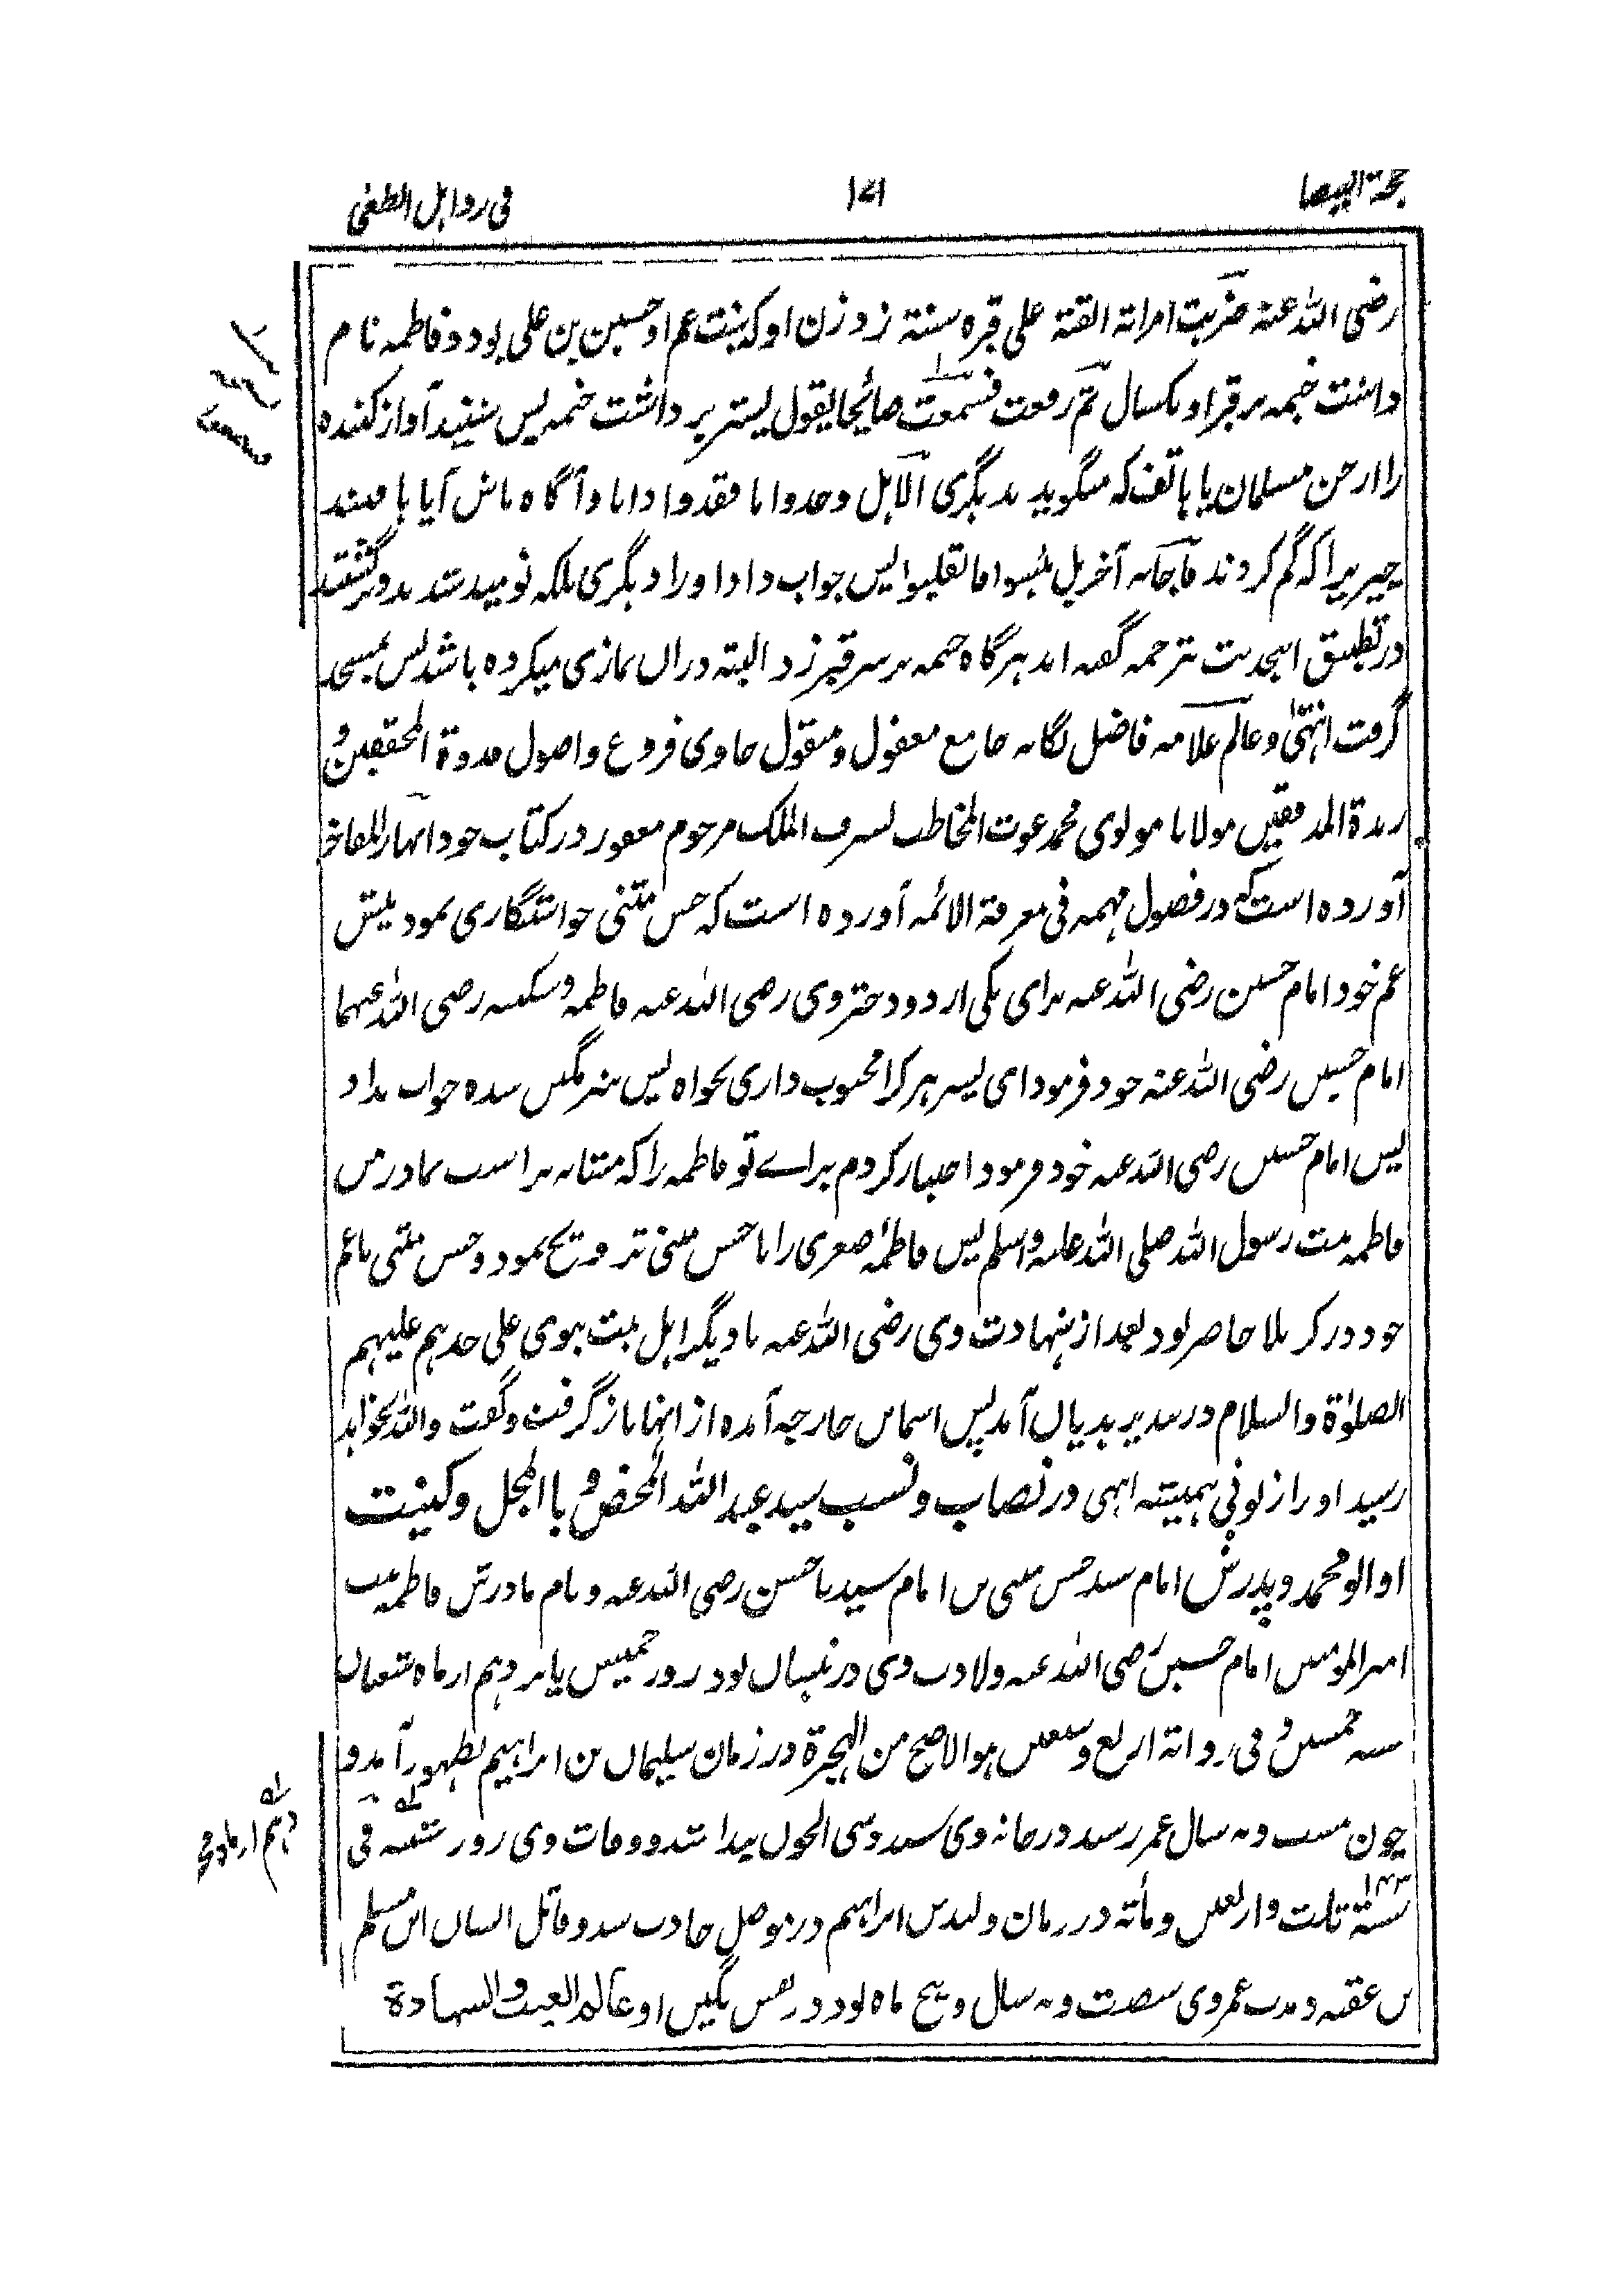 حجة البیضا ۱۲۱ فی رد اہل الطغی
رضی اللہ عنہ ضربت امراتہ القبۃ علی قبرہ سنۃ زد زن او کہ بنت عم او حسین بن علی بود و فاطمہ نام
داشت خیمہ بر قبر او یکسال ثم رفعت فسمعت صائحا یقول پستر برداشت خیمہ پس شنیدند آواز کنندہ
را از جن مسلمان یا ہاتف کہ میگوید بدیگری الا ہل وجدوا ما فقدوا دانا و آگاہ باش آیا یافتند
چیزیرا کہ گم کردند فاجابہ آخر بل یئسوا فانقلبوا پس جواب داد او را دیگری بلکہ نومید شدند و برگشتند
در تطبیق ایحدیث ترجمہ گفتہ اند ہرگاہ خیمہ بر سر قبر زد البتہ دران نمازی میکردہ باشد پس مسجد
گرفت انتہیٰ و عالم علامہ فاضل یگانہ جامع معقول و منقول حاوی فروع و اصول قدوۃ المحققین و
زبدۃ المدققین مولانا مولوی محمد غوث المخاطب بشرف الملک مرحوم مغفور در کتاب خود انہار المفاخر
آوردہ است کہ در فصول مہمہ فی معرفۃ الائمہ آوردہ است کہ حسن مثنی خواستگاری نمود پیش
عم خود امام حسین رضی اللہ عنہ برای یکی از دو دختر وی رضی اللہ عنہ فاطمہ و سکینہ رضی اللہ عنہما
امام حسین رضی اللہ عنہ خود فرمود ای پسر ہر کرا محبوب داری بخواہ پس شرمگین شدہ جواب نداد
پس امام حسین رضی اللہ عنہ خود فرمود اختیار کردم براے تو فاطمہ را کہ مشابہ تر است بمادر من
فاطمہ بنت رسول اللہ صلی اللہ علیہ وسلم پس فاطمہ صغری را با حسن مثنی تزویج نمود و حسن مثنی با عم
خود در کربلا حاضر بود بعد از شہادت وی رضی اللہ عنہ با دیگر اہل بیت نبوی علی جدہم علیہم
الصلوٰۃ والسلام در بندیان آمد پس اسما بن خارجہ آمدہ از انہا باز گرفت و گفت واللہ نخواہد
رسید او را از لوثی ہمیشہ انتہی در نصاب و نسب سید عبد اللہ المحض و با المجل و کنیت
او ابو محمد و پدرش امام سید حسن مثنی بن امام سیدنا حسن رضی اللہ عنہ و نام مادرش فاطمہ بنت
امیر المومنین امام حسین رضی اللہ عنہ ولادت وی در بود روز خمیس یازدہم از ماہ شعبان
سنہ خمسین و فی روایۃ اربع و سبعین ہو الاصح من الہجرۃ در زمان سلیمان بن ابراہیم بظہور آمد و
چون بست و نہ سال عمر رسید در خانہ وی سید موسی الجون پیدا شد و وفات وی روز شنبہ فی
۱۴۳
سنۃ ثلث و اربعین و مأتہ در زمان ولید بن ابراہیم در موصل حادث شد و قاتل انسان ابن مسلم
بن عقبہ و مدت عمر وی شصت و نہ سال و پنج ماہ بود و نقش نگین او عالم الغیب و الشہادۃ